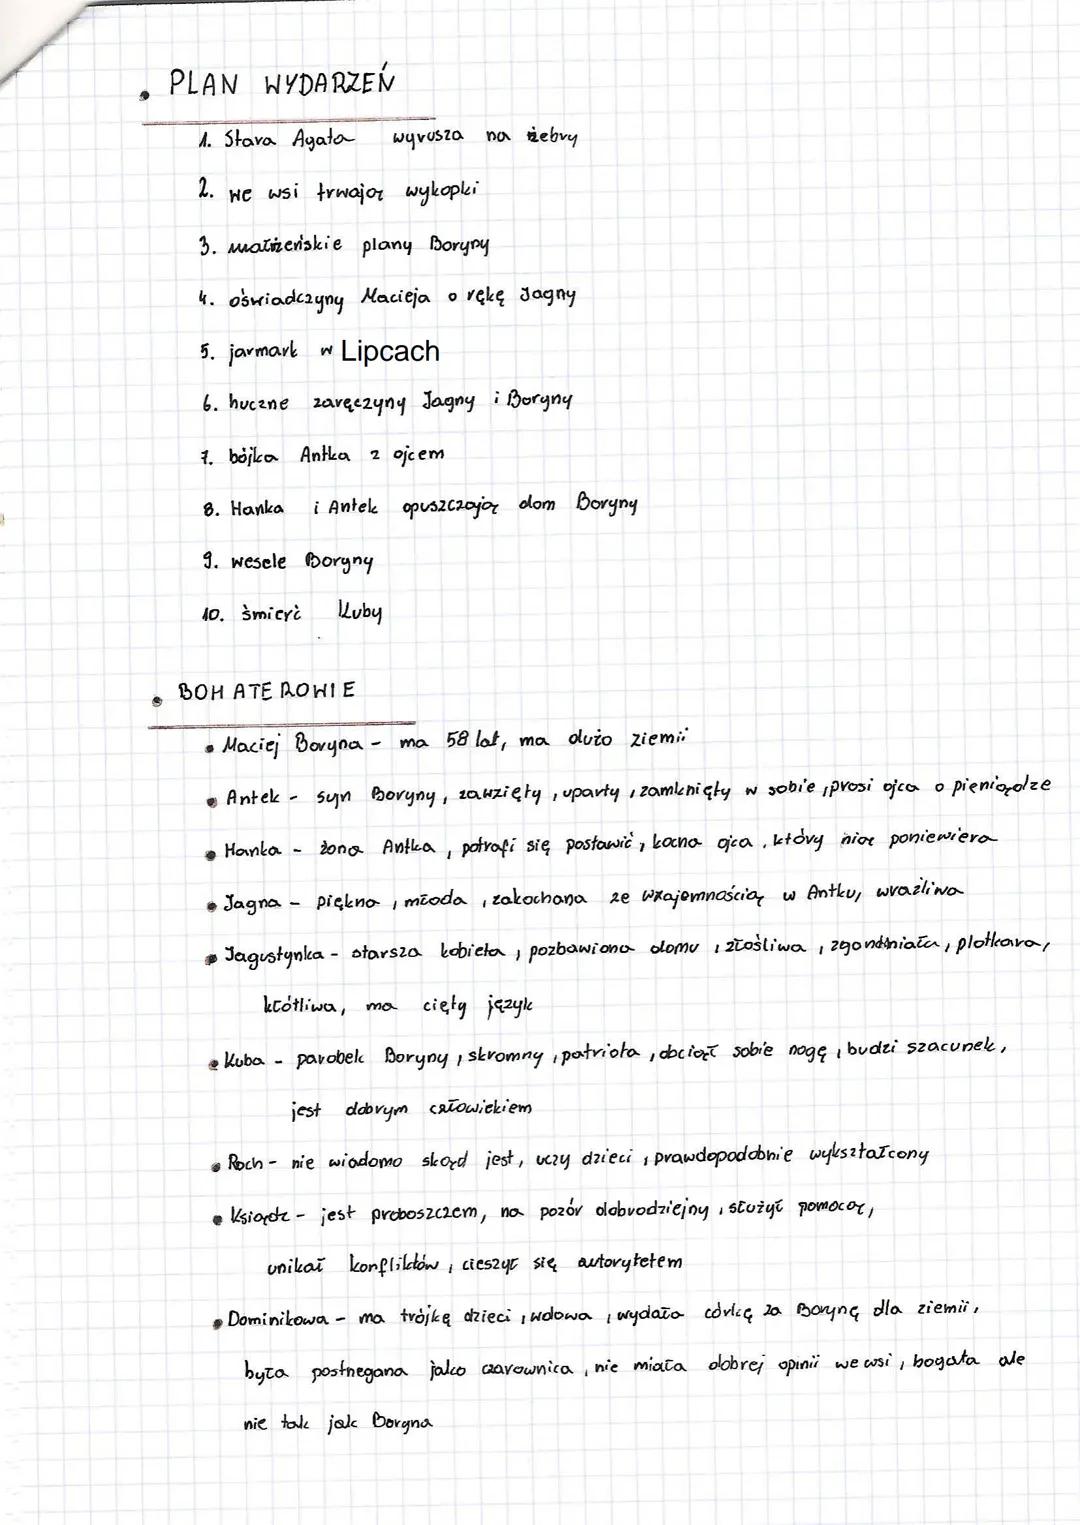 PLAN WYDARZEŃ
1. Stara Agata wyrusza na żebry
2. we wsi trwają wykopki
3. małżeńskie plany Boryny
4. oświadczyny Macieja o rękę Jagny
5. jarmark w Lipcach
6. huczne zaręczyny Jagny i Boryny
7. bójka Antka z ojcem
8. Hanka i Antek opuszczają dom Boryny
9. wesele Boryny
10. śmierć Kuby
BOHATEROWIE
• Maciej Boryna - ma 58 lat, ma dużo ziemii
• Antek - syn Boryny, zawzięty, uparty, zamknięty w sobie, prosi ojca o pieniądze
• Hanka - żona Antka, potrafi się postawić, kocha ojca, który nią poniewiera
• Jagna - piękna, młoda, zakochana ze wzajemnością w Antku, wrażliwa
• Jagustynka - starsza kobieta, pozbawiona domu, złośliwa, zgorzkniała, plotkara,
kłótliwa, ma cięty język
• Kuba - parobek Boryny, skromny, patriota, obciął sobie nogę, budzi szacunek,
jest dobrym człowiekiem
• Roch - nie wiadomo skąd jest, uczy dzieci, prawdopodobnie wykształcony
• Ksiądz - jest proboszczem, na pozór dobrodziejny, służył pomocą,
unikał konfliktów, cieszył się autorytetem
• Dominikowa - ma trójkę dzieci, wdowa, wydała córkę za Borynę dla ziemii,
była postrzegana jako czarownica, nie miała dobrej opinii we wsi, bogata ale
nie tak jak Boryna